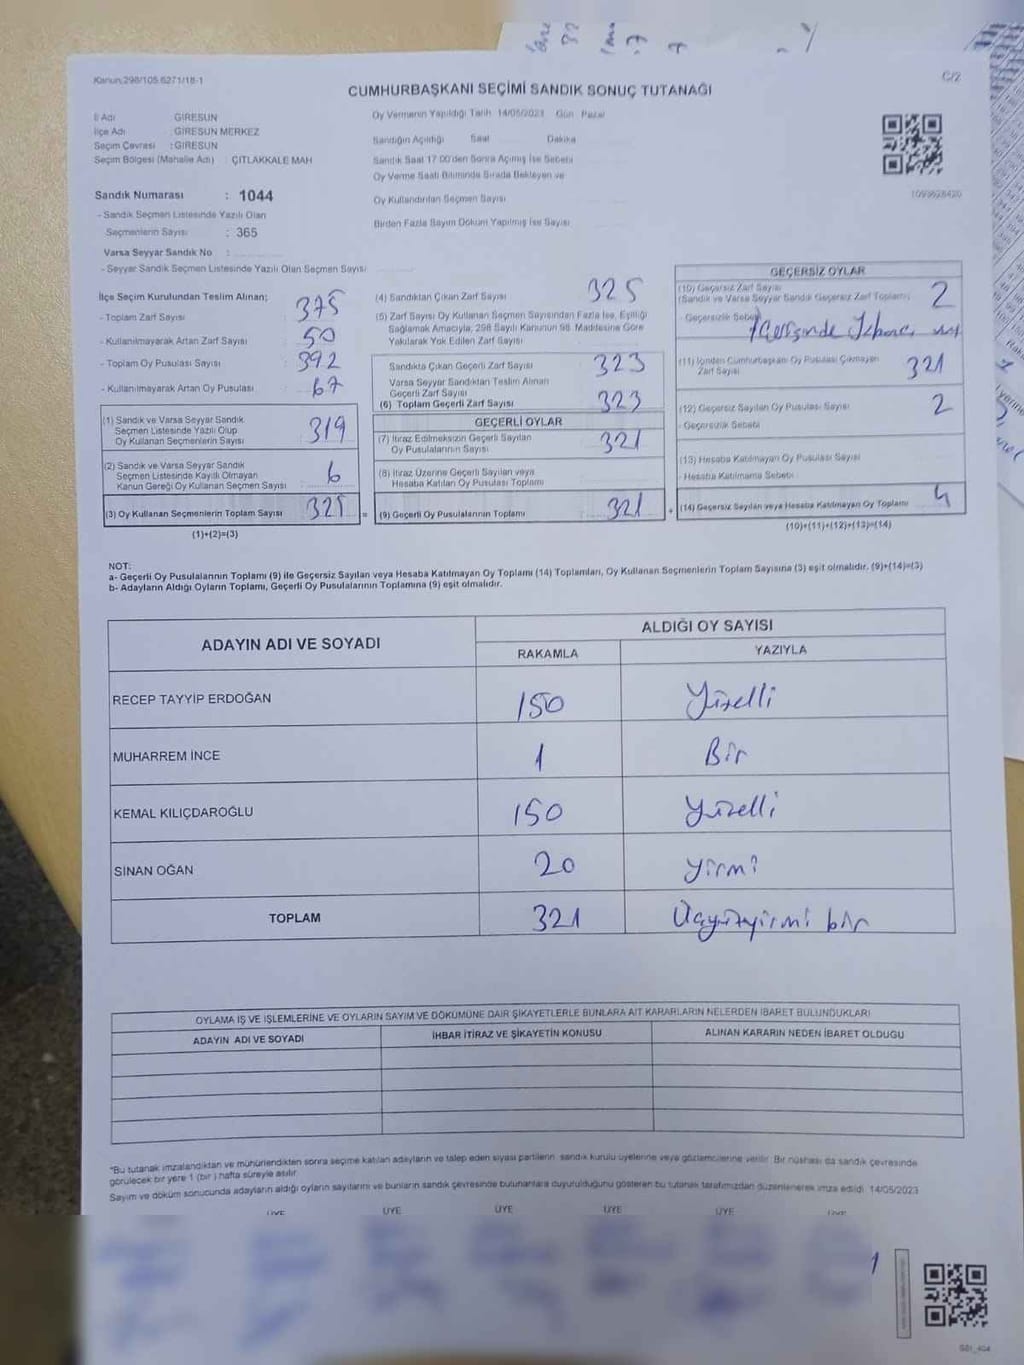 Kanun:298/105 6271/18-1
C/2
CUMHURBAŞKANI SEÇİMİ SANDIK SONUÇ TUTANAĞI
İl Adı GİRESUN
İlçe Adı : GİRESUN MERKEZ
Seçim Çevresi : GİRESUN
Seçim Bölgesi (Mahalle Adı) : ÇITLAKKALE MAH
Sandık Numarası : 1044
- Sandık Seçmen Listesinde Yazılı Olan
Seçmenlerin Sayısı : 365
Varsa Seyyar Sandık No :
- Seyyar Sandık Seçmen Listesinde Yazılı Olan Seçmen Sayısı
Oy Vermenin Yapıldığı Tarih 14/05/2023 Gün Pazar
Sandığın Açıldığı Saat Dakika
Sandık Saat 17:00'den Sonra Açılmış İse Sebebi
Oy Verme Saati Bitiminde Sırada Bekleyen ve
Oy Kullandırılan Seçmen Sayısı
Birden Fazla Sayım Döküm Yapılmış İse Sayısı
İlçe Seçim Kurulundan Teslim Alınan;
- Toplam Zarf Sayısı 375
- Kullanılmayarak Artan Zarf Sayısı 50
- Toplam Oy Pusulası Sayısı 392
- Kullanılmayarak Artan Oy Pusulası 67
(1) Sandık ve Varsa Seyyar Sandık
Seçmen Listesinde Yazılı Olup
Oy Kullanan Seçmenlerin Sayısı 319
(2) Sandık ve Varsa Seyyar Sandık
Seçmen Listesinde Kayıtlı Olmayan
Kanun Gereği Oy Kullanan Seçmen Sayısı 6
(3) Oy Kullanan Seçmenlerin Toplam Sayısı 325 =
(1)+(2)=(3)
(4) Sandıktan Çıkan Zarf Sayısı 325
(5) Zarf Sayısı Oy Kullanan Seçmen Sayısından Fazla İse, Eşitliği
Sağlamak Amacıyla, 298 Sayılı Kanunun 98. Maddesine Göre
Yakılarak Yok Edilen Zarf Sayısı
Sandıkta Çıkan Geçerli Zarf Sayısı 323
Varsa Seyyar Sandıktan Teslim Alınan
Geçerli Zarf Sayısı
(6) Toplam Geçerli Zarf Sayısı 323
GEÇERLİ OYLAR
(7) İtiraz Edilmeksizin Geçerli Sayılan
Oy Pusulalarının Sayısı 321
(8) İtiraz Üzerine Geçerli Sayılan veya
Hesaba Katılan Oy Pusulası Toplamı
(9) Geçerli Oy Pusulalarının Toplamı 321 +
GEÇERSİZ OYLAR
(10) Geçersiz Zarf Sayısı
(Sandık ve Varsa Seyyar Sandık Geçersiz Zarf Toplamı) 2
- Geçersizlik Sebebi
(11) İçinden Cumhurbaşkanı Oy Pusulası Çıkmayan
Zarf Sayısı 321
(12) Geçersiz Sayılan Oy Pusulası Sayısı 2
- Geçersizlik Sebebi
(13) Hesaba Katılmayan Oy Pusulası Sayısı
- Hesaba Katılmama Sebebi
(14) Geçersiz Sayılan veya Hesaba Katılmayan Oy Toplamı 4
(10)+(11)+(12)+(13)=(14)
NOT:
a- Geçerli Oy Pusulalarının Toplamı (9) ile Geçersiz Sayılan veya Hesaba Katılmayan Oy Toplamı (14) Toplamları, Oy Kullanan Seçmenlerin Toplam Sayısına (3) eşit olmalıdır. (9)+(14)=(3)
b- Adayların Aldığı Oyların Toplamı, Geçerli Oy Pusulalarının Toplamına (9) eşit olmalıdır.
ADAYIN ADI VE SOYADI ALDIĞI OY SAYISI
RAKAMLA YAZIYLA
RECEP TAYYİP ERDOĞAN 150 Yüzelli
MUHARREM İNCE 1 Bir
KEMAL KILIÇDAROĞLU 150 Yüzelli
SİNAN OĞAN 20 Yirmi
TOPLAM 321 Üçyüzyirmi bir
OYLAMA İŞ VE İŞLEMLERİNE VE OYLARIN SAYIM VE DÖKÜMÜNE DAİR ŞİKAYETLERLE BUNLARA AİT KARARLARIN NELERDEN İBARET BULUNDUKLARI
ADAYIN ADI VE SOYADI İHBAR İTİRAZ VE ŞİKAYETİN KONUSU ALINAN KARARIN NEDEN İBARET OLDUĞU
"Bu tutanak imzalandıktan ve mühürlendikten sonra seçime katılan adayların ve talep eden siyasi partilerin, sandık kurulu üyelerine veya gözlemcilerine verilir. Bir nüshası da sandık çevresinde
görülecek bir yere 1 (bir) hafta süreyle asılır.
Sayım ve döküm sonucunda adayların aldığı oyların sayılarını ve bunların sandık çevresinde bulunanlara duyurulduğunu gösteren bu tutanak tarafımızdan düzenlenerek imza edildi. 14/05/2023
ÜYE ÜYE ÜYE ÜYE ÜYE ÜYE